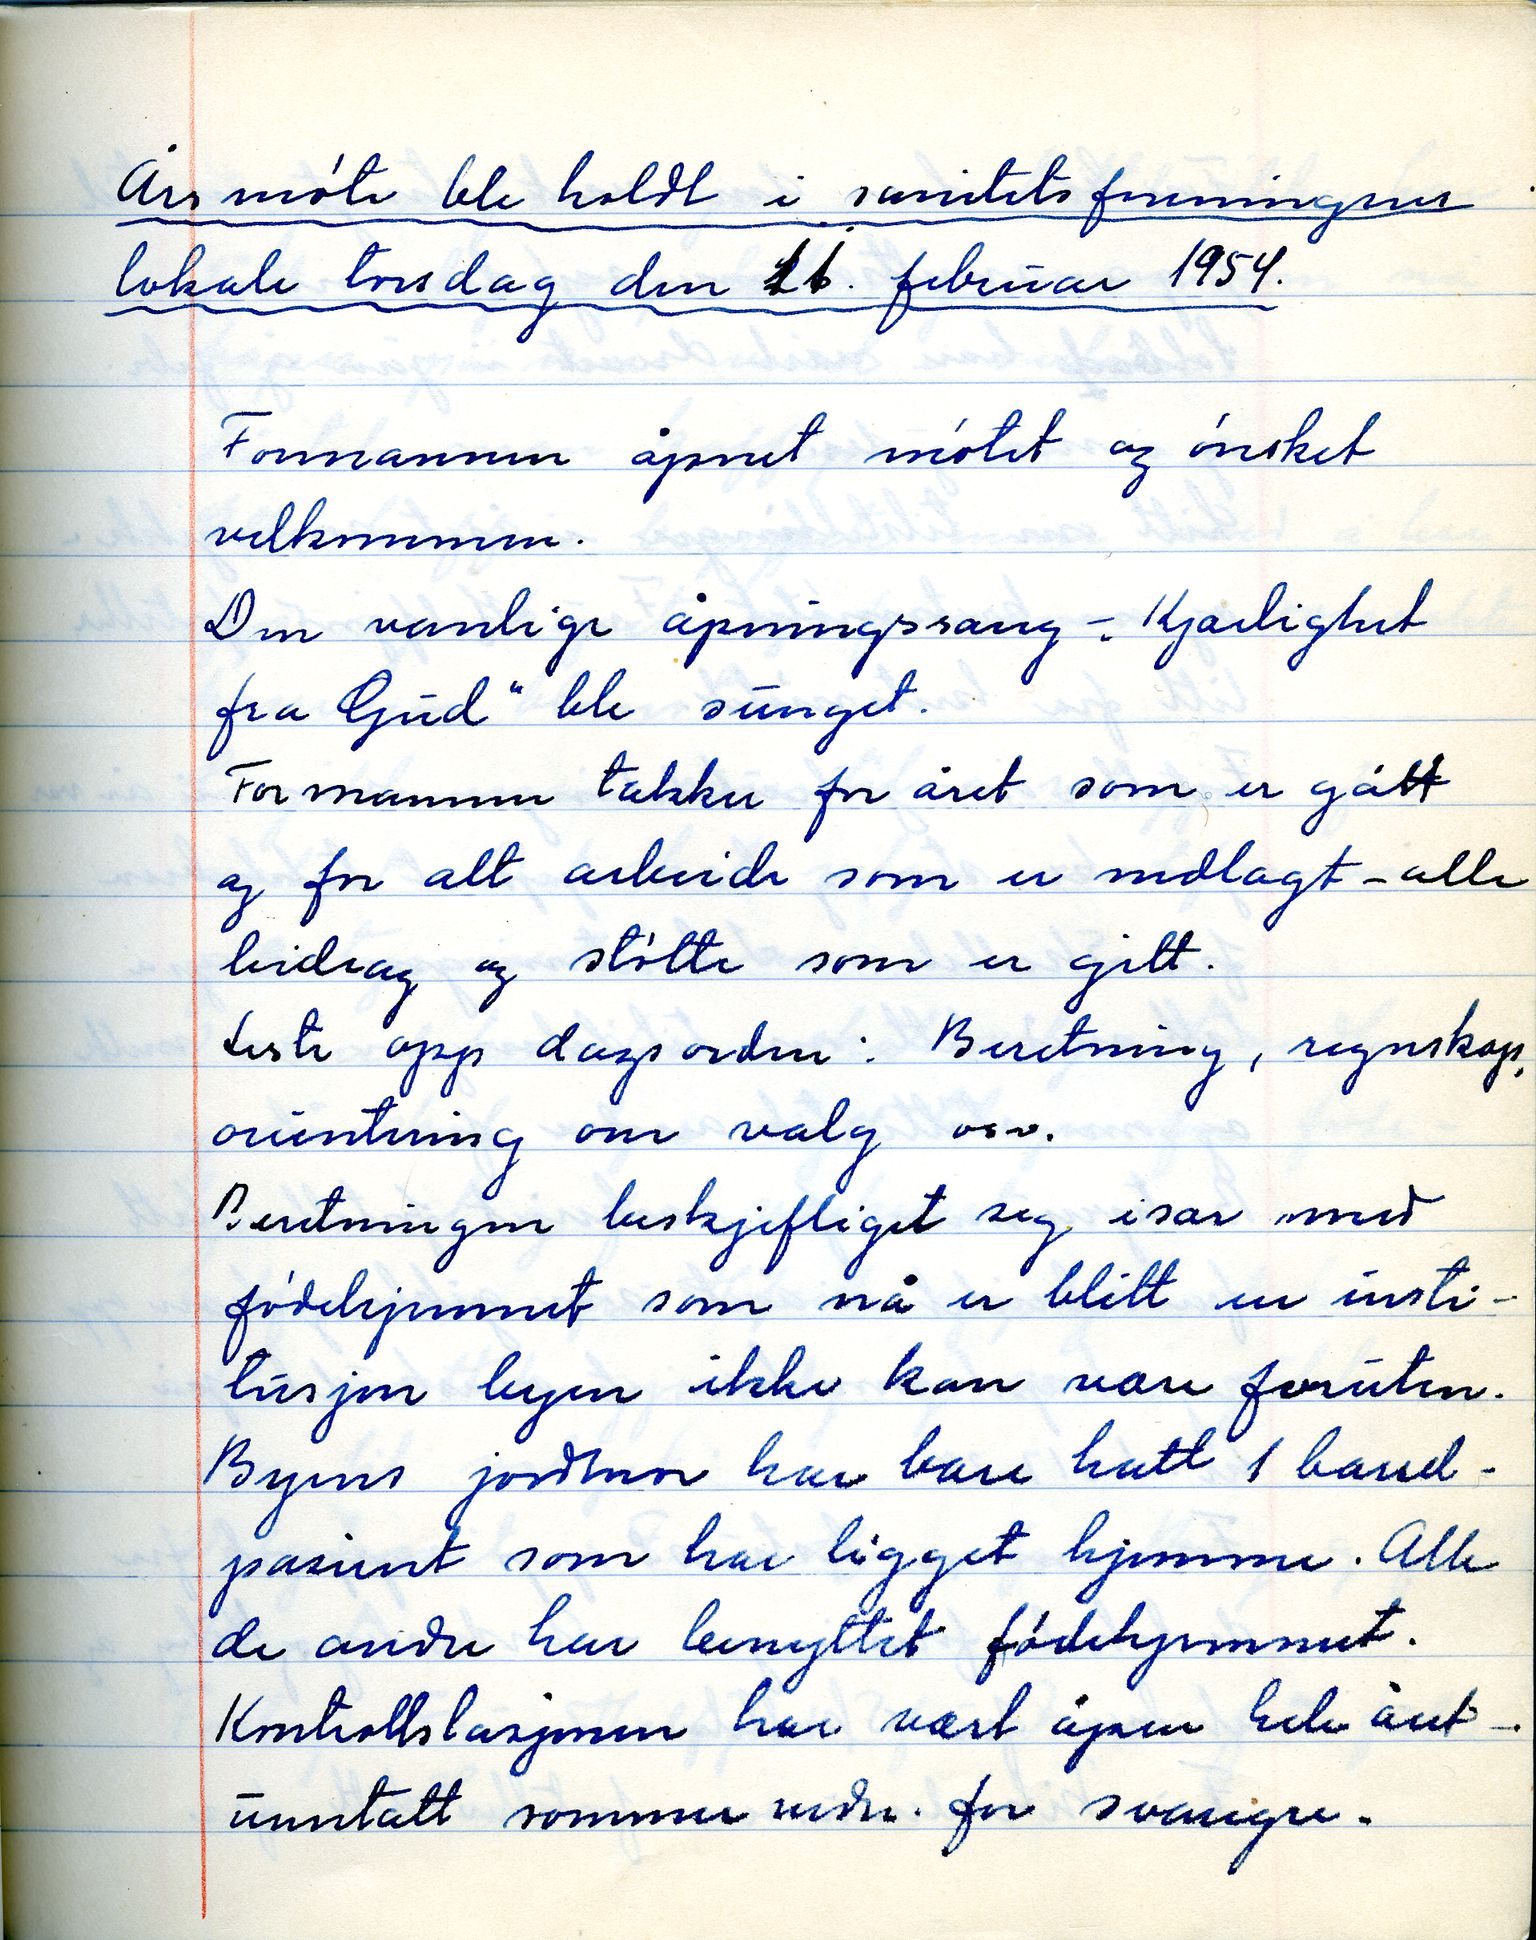 Årsmøte ble holdt i sanitetsforeningens
lokale torsdag den 11. februar 1954.
Formannen åpnet møtet og ønsket
velkommen.
Den vanlige åpningssang - „Kjærlighet
fra Gud" ble sunget.
Formannen takker for året som er gått
og for alt arbeide som er nedlagt - alle
bidrag og støtte som er gitt.
Leste opp dagsorden: Beretning, regnskap,
orientering om valg osv.
Beretningen beskjeftiget seg især med
fødehjemmet som nå er blitt en insti-
tusjon byen ikke kan være foruten.
Byens jordmor har bare hatt 1 barsel-
pasient som har ligget hjemme. Alle
de andre har benyttet fødehjemmet.
Kontrollstasjonen har vært åpen hele året -
unntatt sommer for svangre.